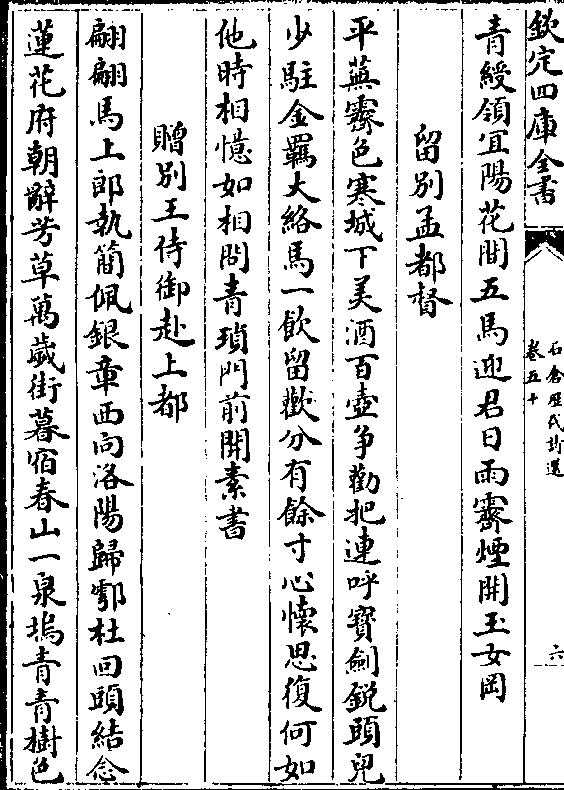 欽定四庫全書
石倉歷代詩選
卷五十
六
青綬領宜陽花間五馬迎君日雨霽煙開玉女岡
留别孟都督
平蕪霽色寒城下美酒百壺争勸把連呼寶劍銳頭兒
少駐金羈大絡馬一飲留歡分有餘寸心懷思復何如
他時相憶如相問青瑣門前開素書
贈别王侍御赴上都
翩翩馬上郎執簡佩銀章西向洛陽歸鄠杜回頭結念
蓮花府朝辭芳草萬歲街暮宿春山一泉塢青青樹色